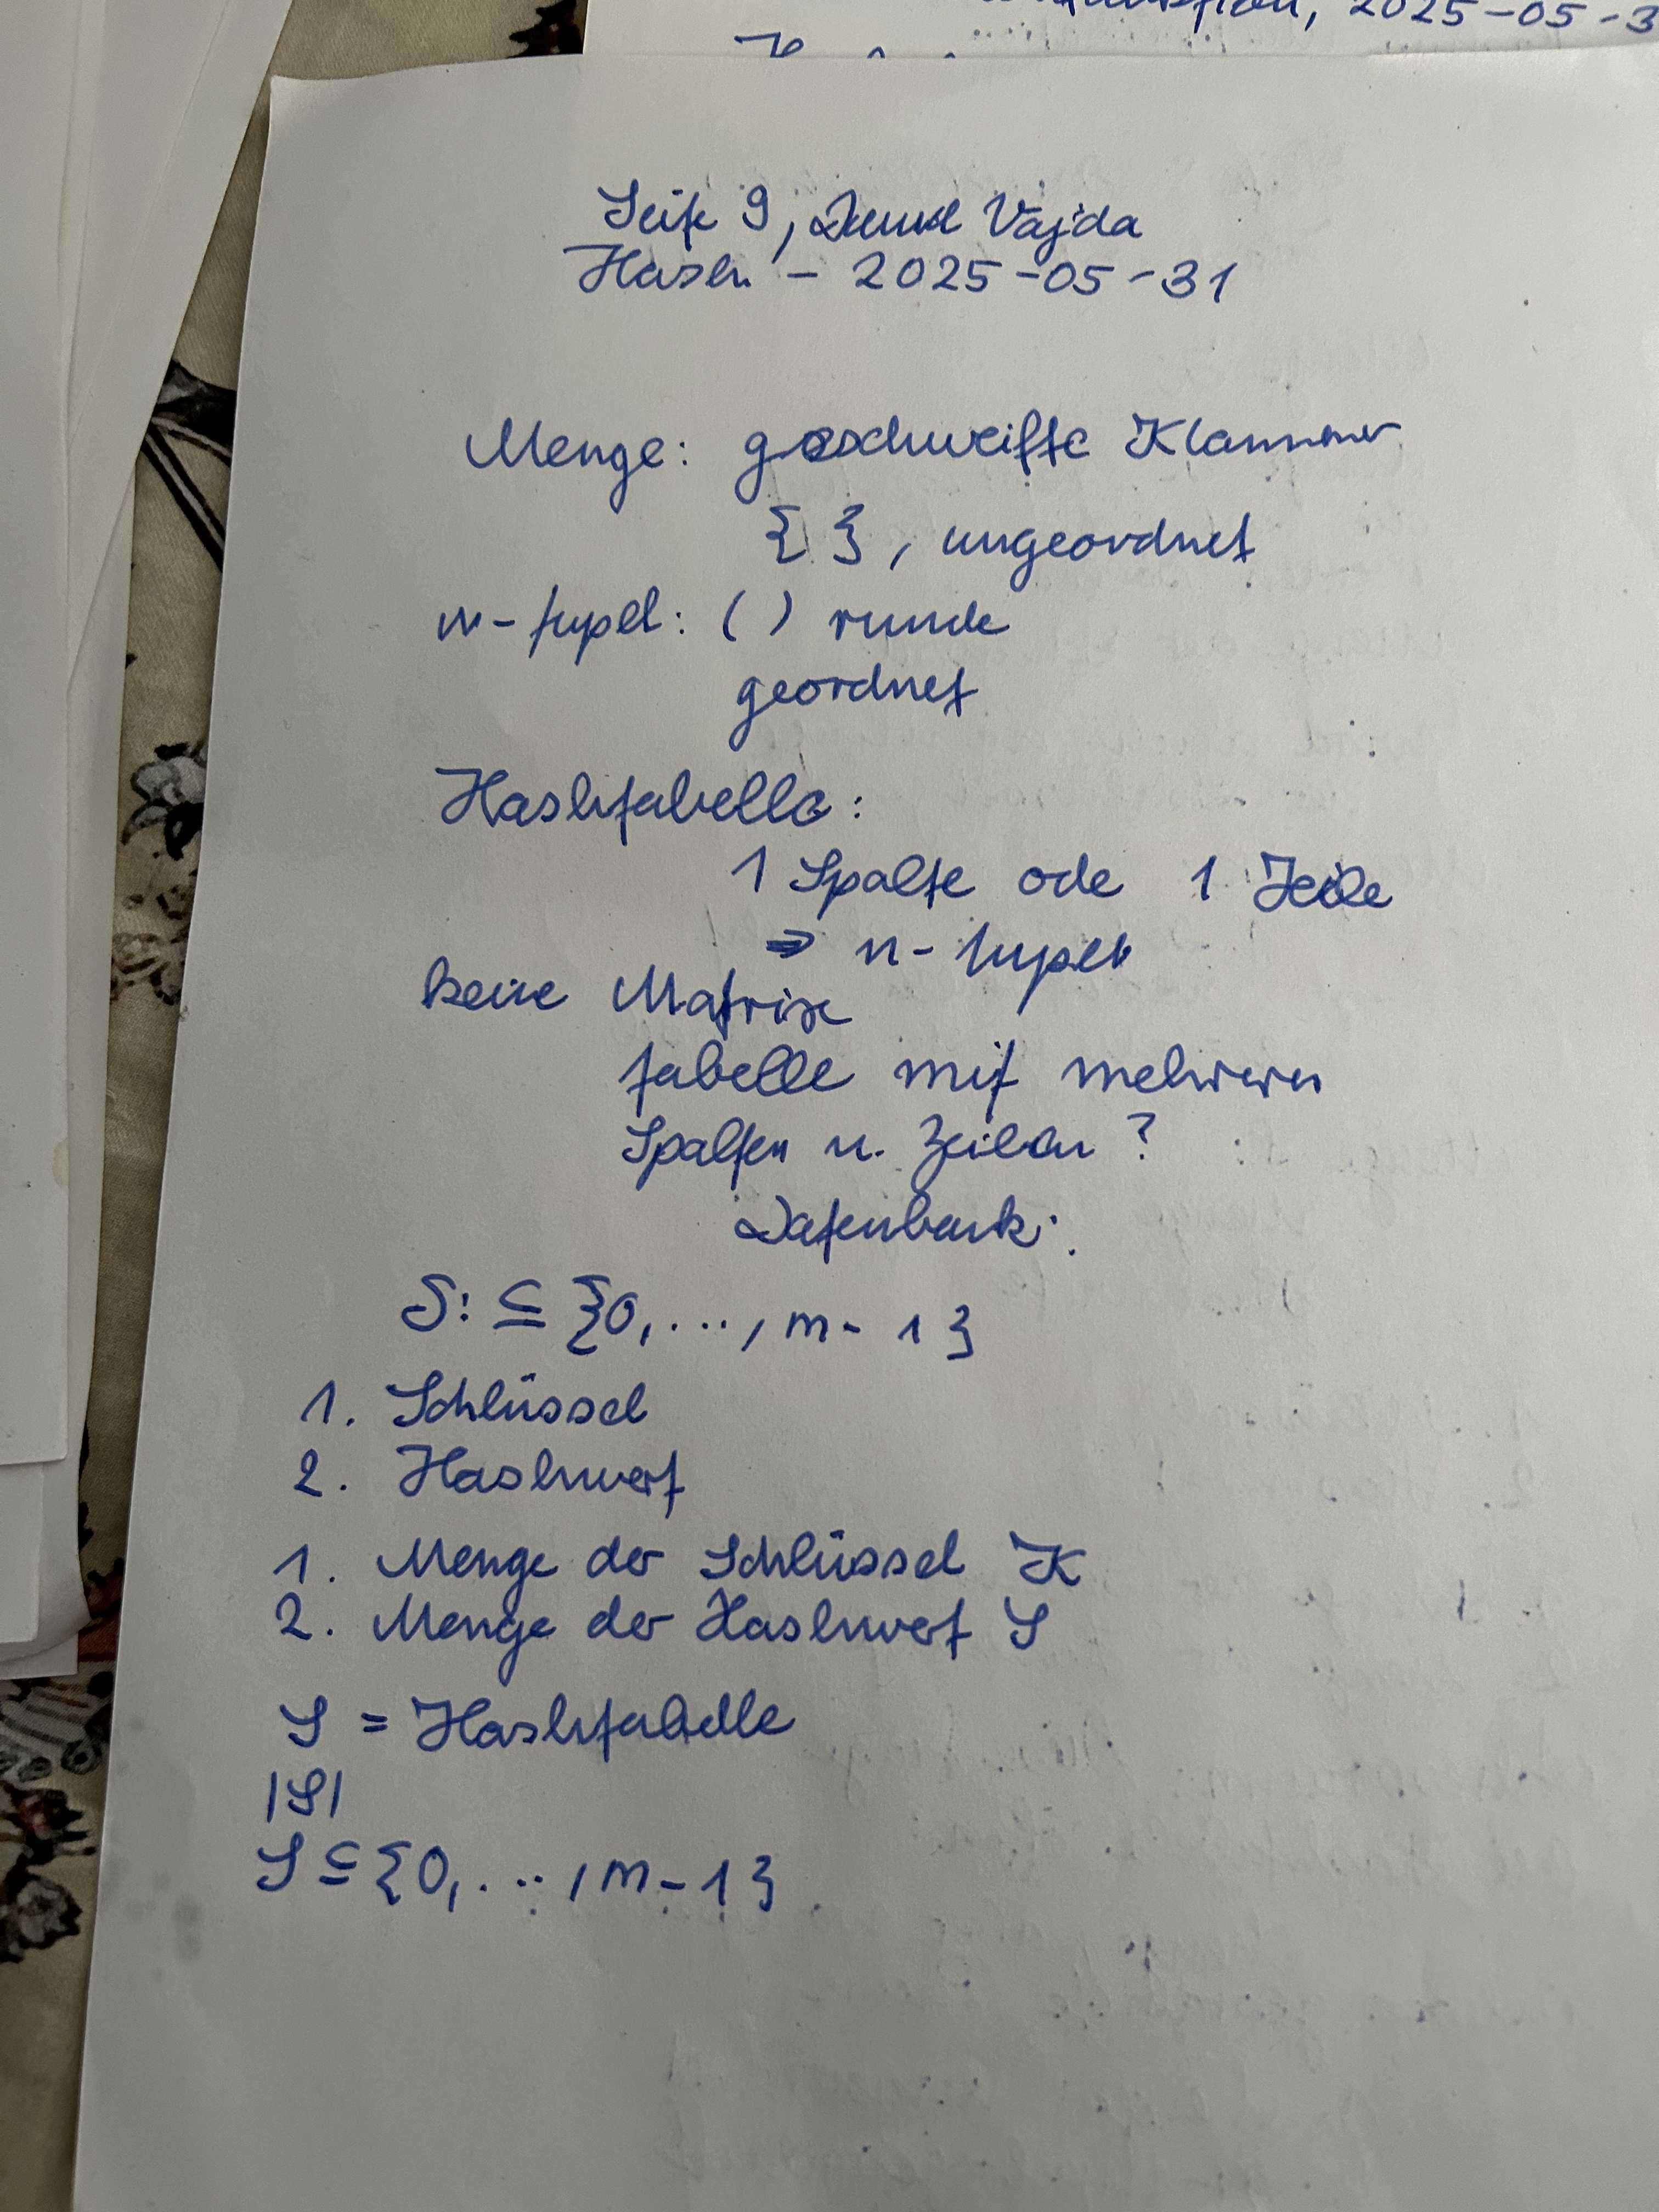 , 2025-05-3
Seite 9, David Vajda
Hash - 2025-05-31
Menge: geschweifte Klammer
{ }, ungeordnet
n-tupel: ( ) runde
geordnet
Hashtabelle:
1 Spalte ode 1 Zeile
⇒ n-tupel
keine Matrix
tabelle mit mehreren
Spalten u. Zeilen ?
Datenbank:
S: ⊆ {0, ..., m-1}
1. Schlüssel
2. Hashwert
1. Menge der Schlüssel K
2. Menge der Hashwert S
S = Hashtabelle
|S|
S ⊆ {0, ..., m-1}